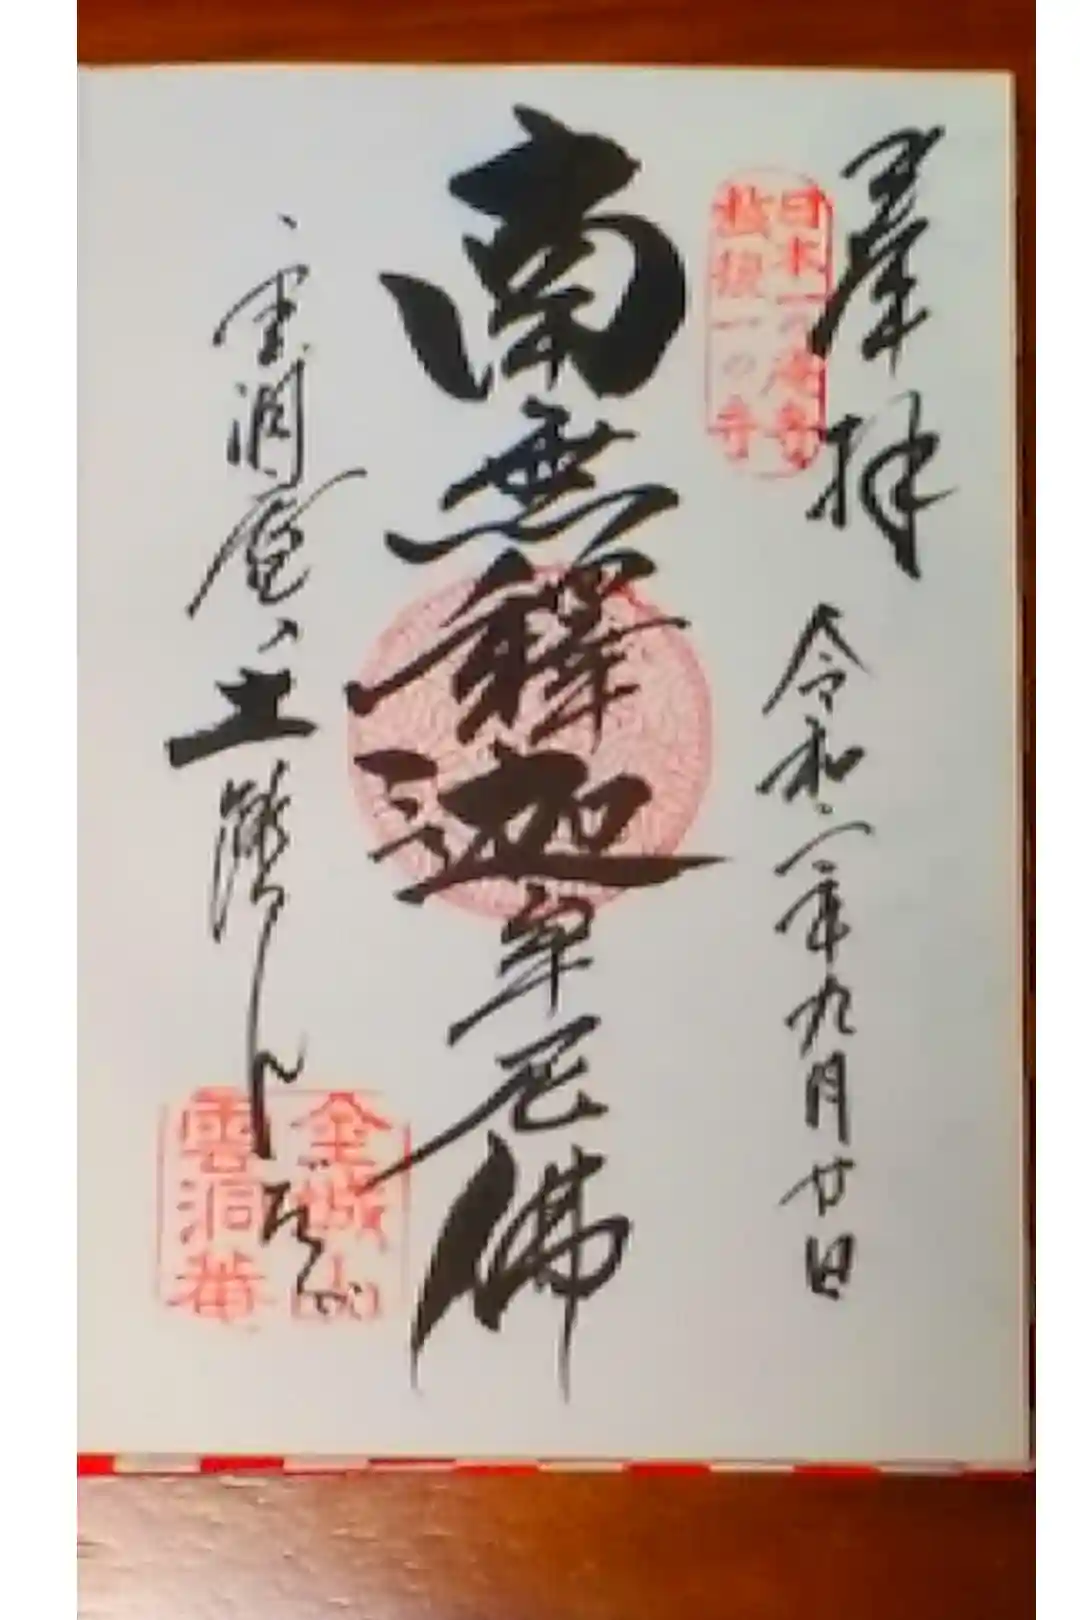 拝 令和二年九月廿日
日本一の庵寺
越後一の寺
南無釋迦牟尼佛
雲洞庵土踏んだか
金城山
雲洞菴